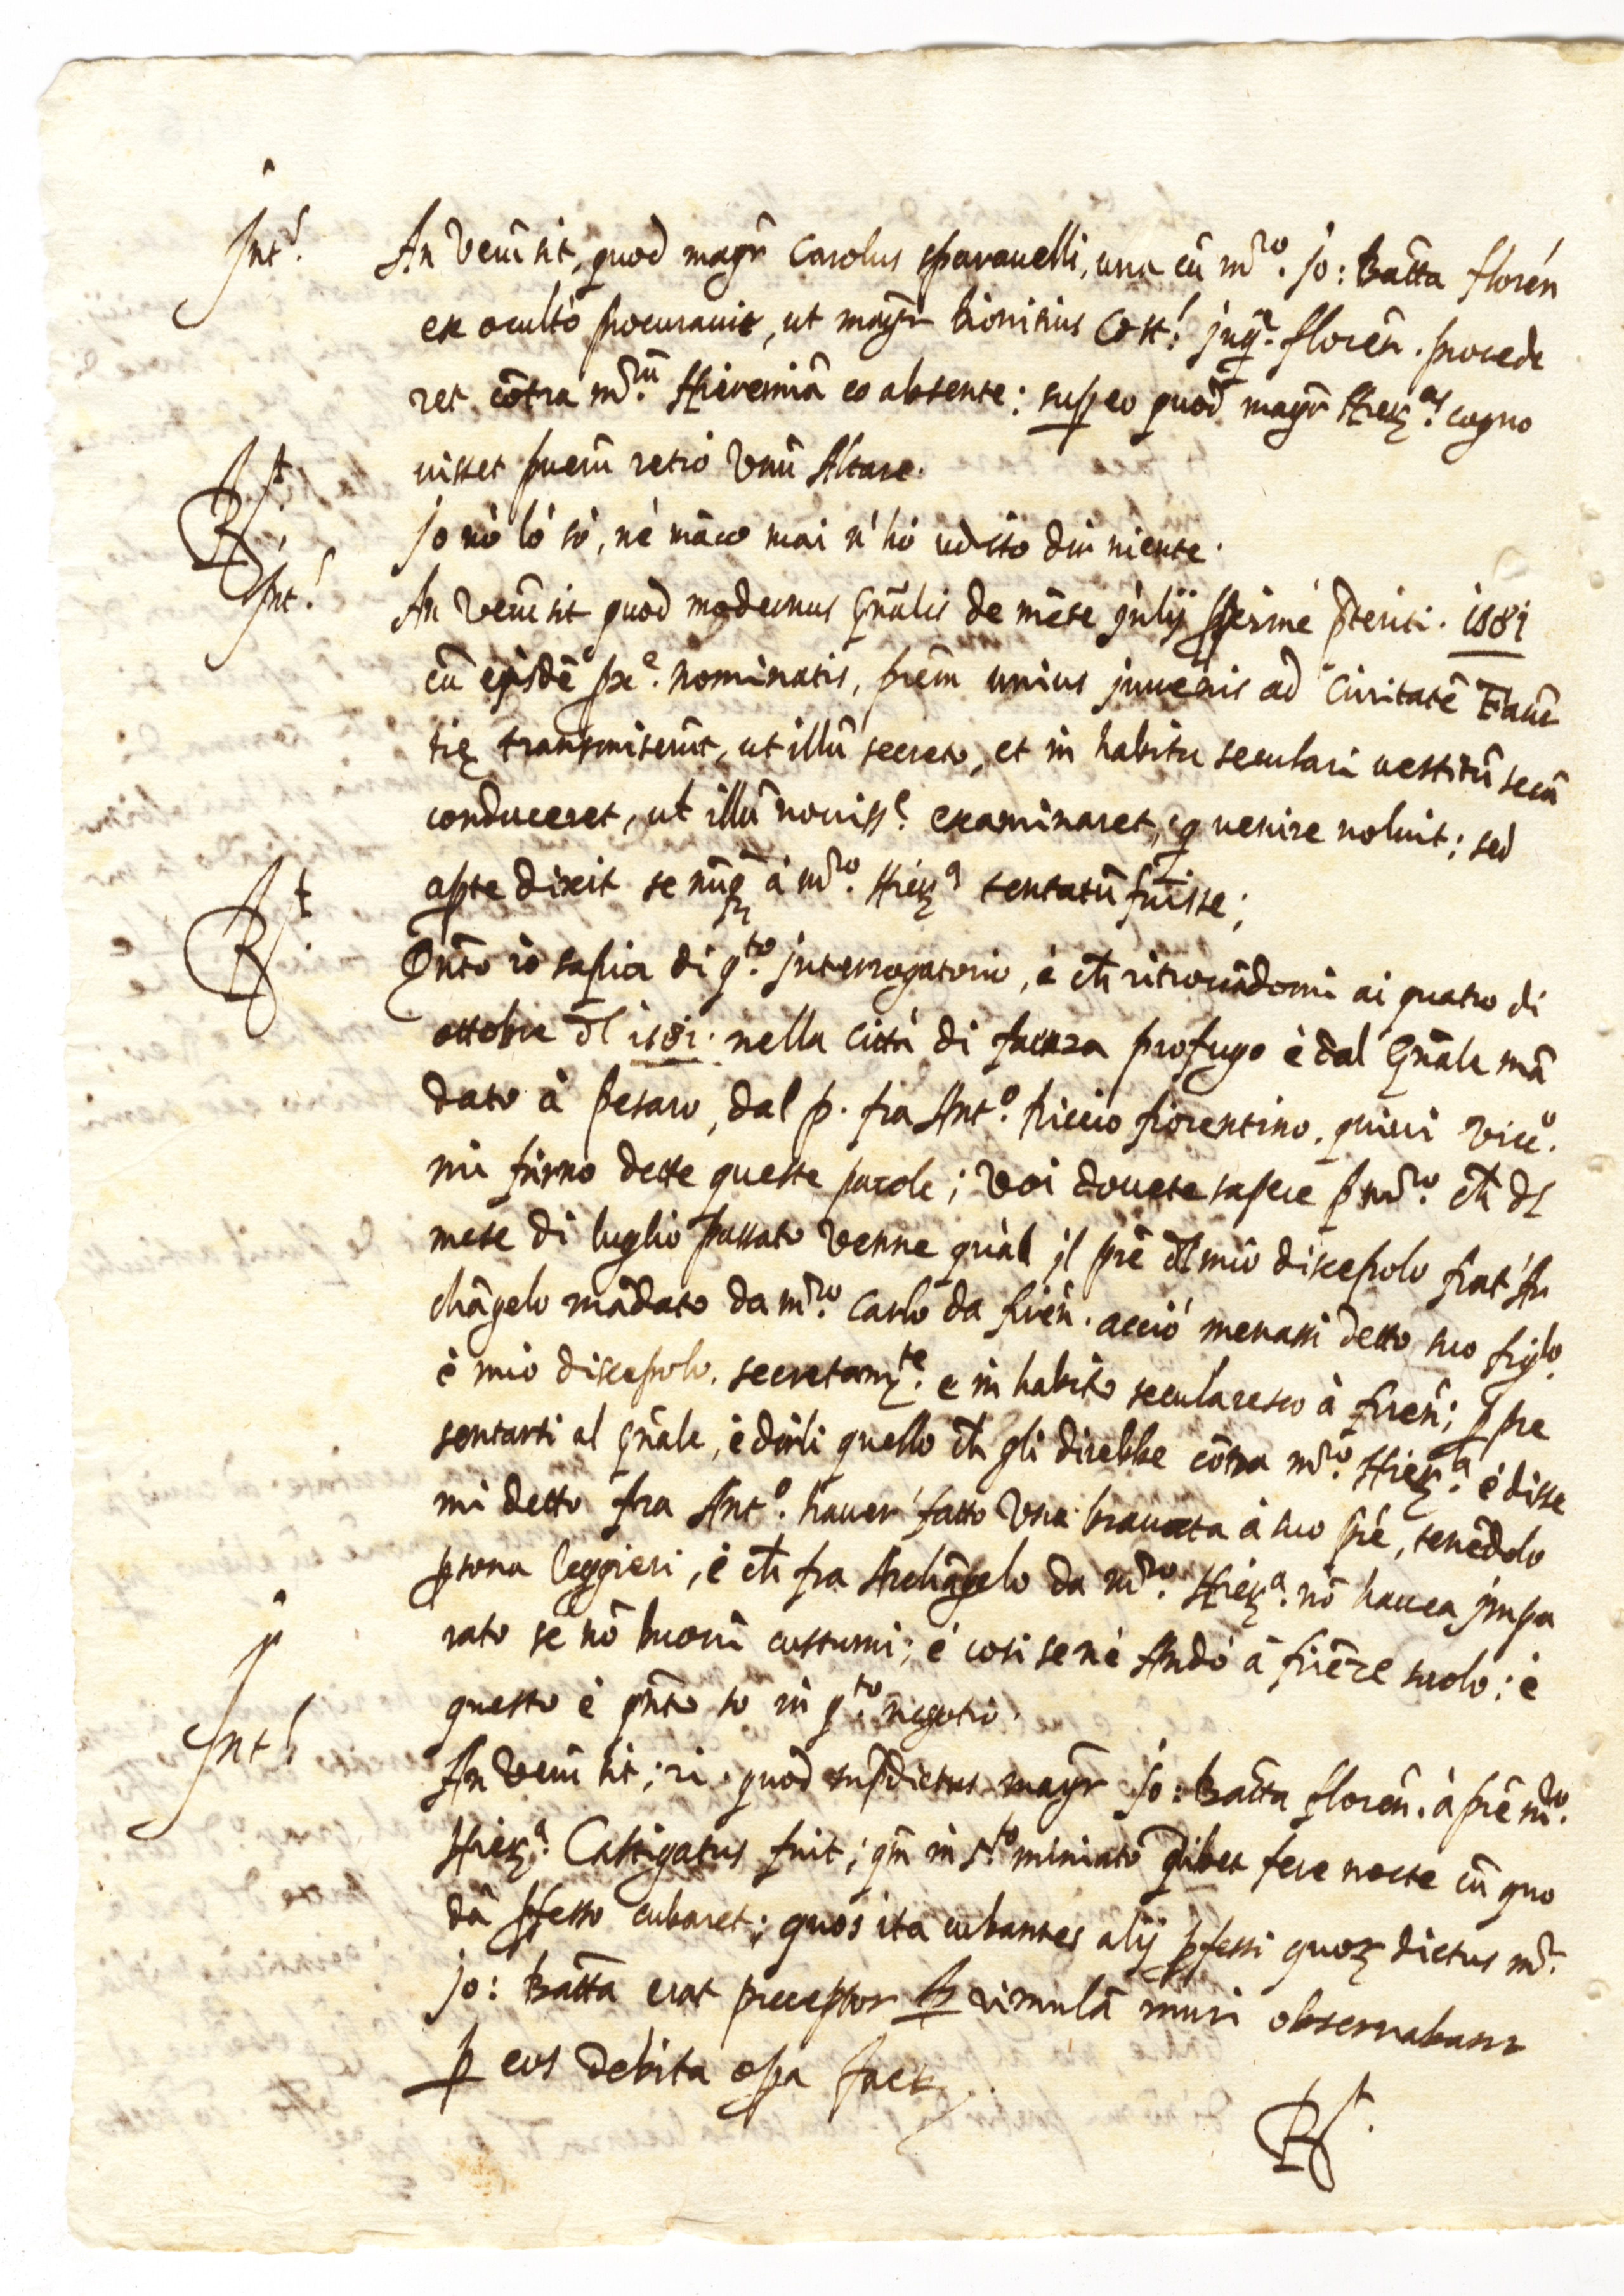 Int.r An verũ sit, quod magr̃ Carolus sparauelli, una cũ m.ro Jo: Batt̃a florẽn
ex oculto procurauit, ut magr̃ Dionisius Cost: jnq.r florẽn. procede
ret cõtra m.rũ Hieremiã eo absente: sup eo quod magr̃ Hier.as cogno
uisset puerũ retro Unũ Altare.
R.t Jo nõ lò sò, nè mãco mai n'hò udito dir niente.
Int.r An verũ sit quod modernus Gñalis de mẽse julij proximè p̃teriti. 1581
cũ eisdẽ nominatis, prẽm unius juuenis ad Ciuitatẽ Fauẽ
tię transmiserũt, ut illũ secreto, et in habitu seculari uestitũ secũ
conduceret, ut illũ nouiss.e examinaret, q uenire noluit; sed
apte dixit se nũq̃ à m.ro Hier.a tentatũ fuisse;
R.t Qñto iò sapia di q.to jnterrogatorio, è ch̃ ritrouãdomi ai quatro di
ottobre dl̃ 1581. nella Città di faenza profugo è dal Gñale mã
dato à Pesaro, dal p. fra Ant.o Riccio fiorentino, quiui Vic.o
mi furno dette queste parole; Voi douete sapere p m.ro ch̃ dl
mese di luglio passato Venne quà il prẽ dl̃ mio discepolo frat'Ar
chãgelo mãdato da m.ro Carlo da firẽn. acciò menassi detto suo figlo.
è mio discepolo, secretam.te e in habito secularesco à firẽn; p pre
sentarsi al Gñale, è dirli quello ch̃ gli direbbe cõtra m.ro Hier.a è disse
mi detto fra Ant.o hauer' fatto Vna brauata à suo prẽ, tenẽdolo
psona leggieri, è ch̃ fra Archãgelo da m.ro Hier.a nõ hauea jmpa
rato se nõ buoni custumi; è cosi se nè Andò à firẽze suolo; è
questo è qñto so in q.to negotio.
Int.r An verũ sit; quod sup̃dictus magr̃ Jo: Batt̃a florẽn. à prẽ m.ro
Hier.a Castigatus fuit; qm̃ in S.to miniato qlibet fere nocte cũ quo
dã pfesso cubaret; quos ita cubantes alij pfessi quor dictus m.r
Jo: Batt̃a erat preceptor p rimulã muri obseruabant
p eos debita opa
R.t